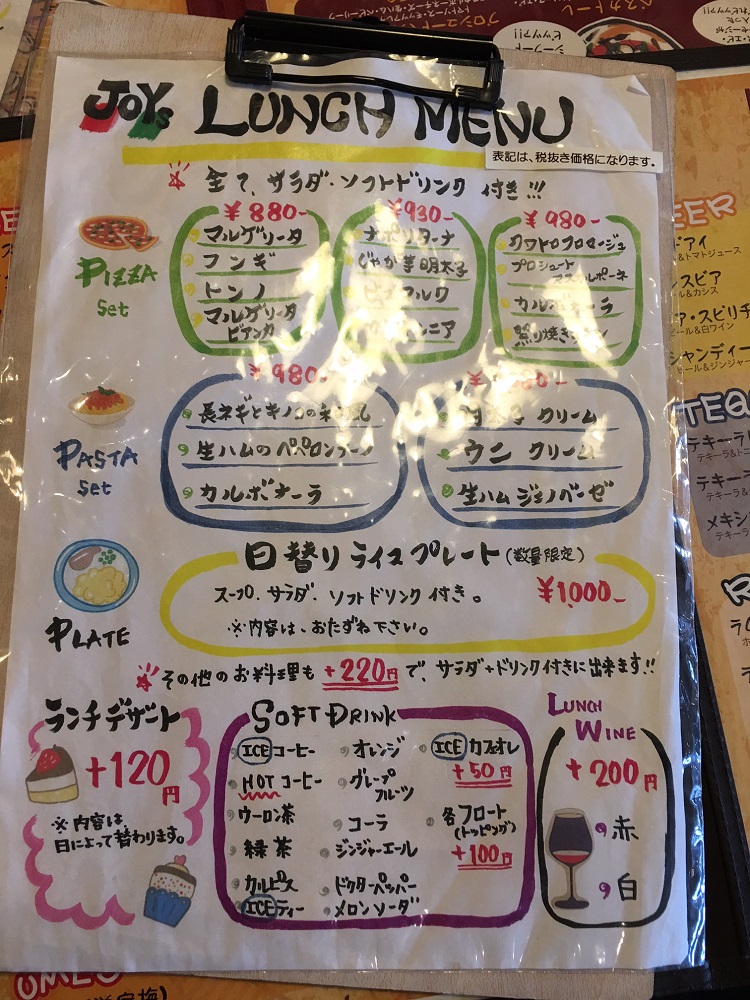 JOYs LUNCH MENU
表記は、税抜き価格になります。
全て、サラダ・ソフトドリンク 付き!!!
PIZZA
Set
¥880-
マルゲリータ
フンギ
トンノ
マルゲリータ
ビアンカ
¥930-
ナポリターナ
じゃが芋明太子
ニア
¥980-
クワトロフロマージュ
プロシュート
マスカルポーネ
カルボナーラ
照り焼きチキン
PASTA
Set
¥980-
長ネギとキノコの
生ハムのペペロンチーノ
カルボナーラ
クリーム
ウニ クリーム
生ハムジェノベーゼ
PLATE
日替りライスプレート(数量限定)
スープ、サラダ、ソフトドリンク付き。
¥1,000-
※内容は、おたずね下さい。
その他のお料理も+220円で、サラダ+ドリンク付きに出来ます!!
ランチデザート
+120円
※内容は、
日によって替わります。
SOFT DRINK
ICEコーヒー
HOTコーヒー
ウーロン茶
緑茶
カルピス
ICEティー
オレンジ
グレープ
フルーツ
コーラ
ジンジャーエール
ドクターペッパー
メロンソーダ
ICEカフェオレ
+50円
各フロート
(トッピング)
+100円
LUNCH
WINE
+200円
赤
白